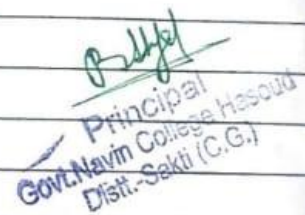 Principal
Govt.Navin College Hasoud
Distt.-Sakti (C.G.)